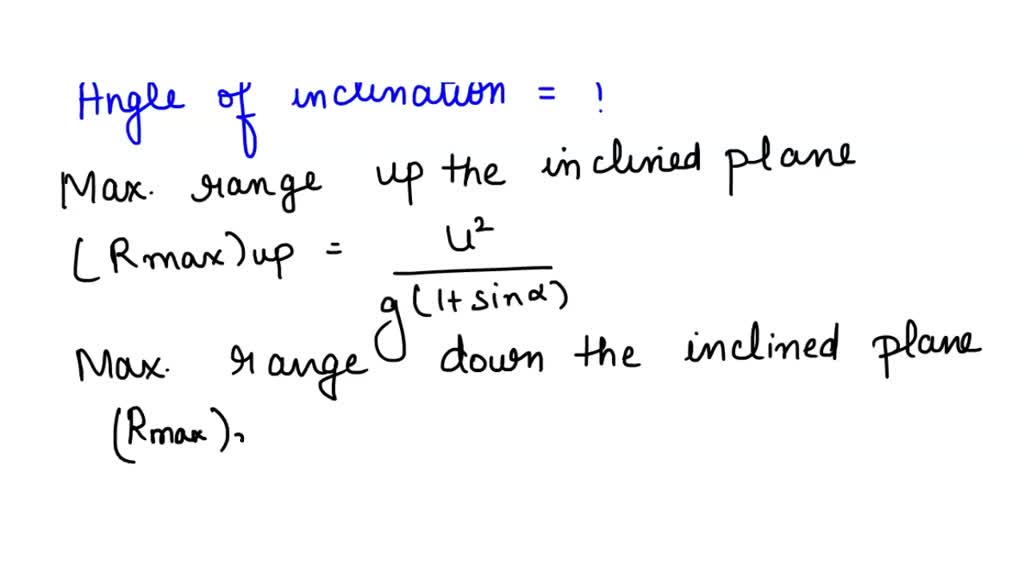 Angle of inclination = !
Max. range up the inclined plane
(Rmax)up = u² / g(1+sinα)
Max. range down the inclined plane
(Rmax)